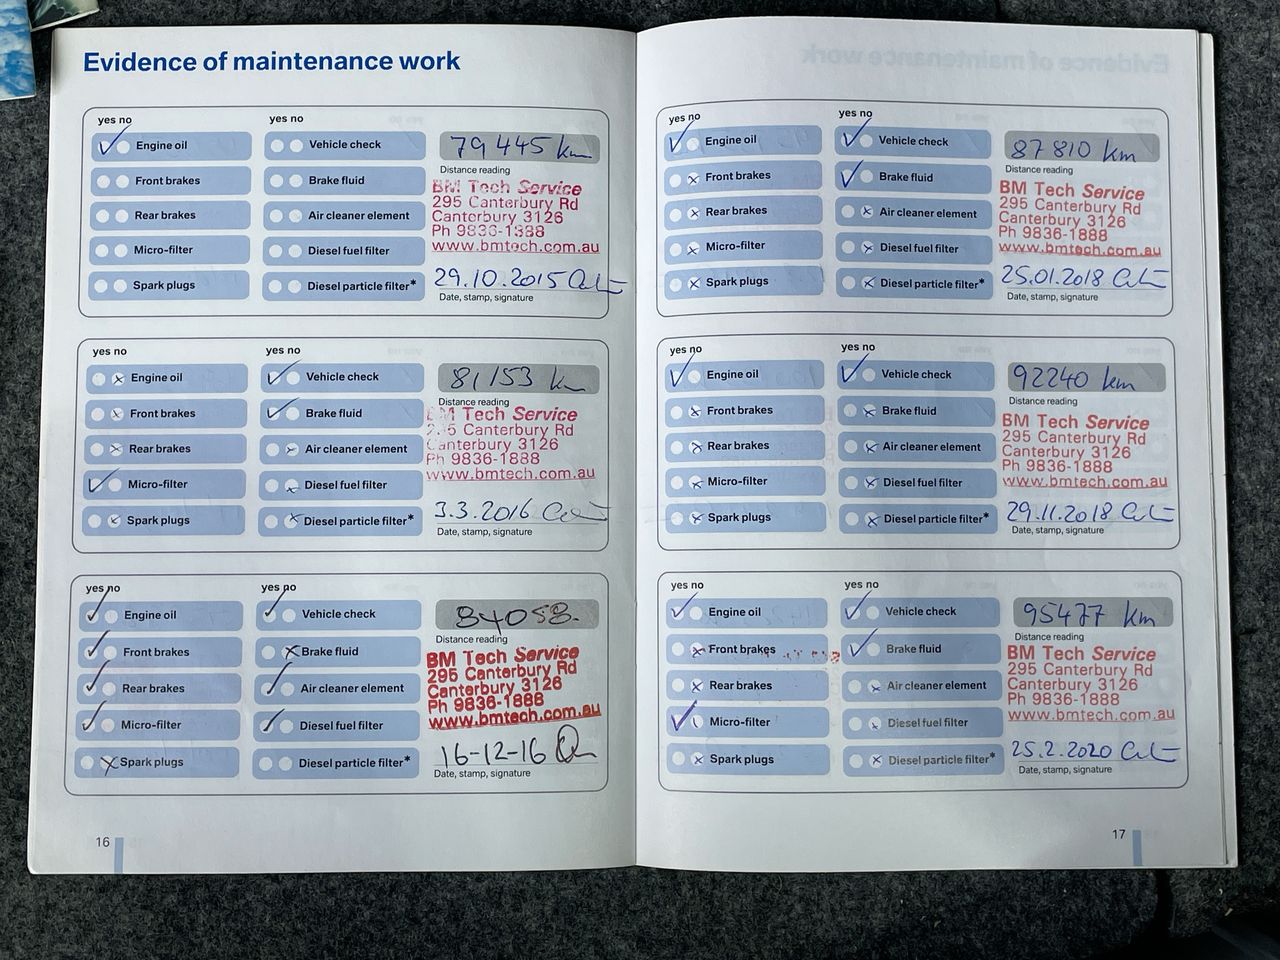 Evidence of maintenance work
yes no
yes no
Engine oil
Vehicle check
79445 km
Distance reading
Front brakes
Brake fluid
BM Tech Service
295 Canterbury Rd
Rear brakes
Air cleaner element
Canterbury 3126
Ph 9836-1888
Micro-filter
Diesel fuel filter
www.bmtech.com.au
Spark plugs
Diesel particle filter*
29.10.2015
Date, stamp, signature
yes no
yes no
Engine oil
Vehicle check
81153 km
Distance reading
Front brakes
Brake fluid
BM Tech Service
295 Canterbury Rd
Rear brakes
Air cleaner element
Canterbury 3126
Ph 9836-1888
Micro-filter
Diesel fuel filter
www.bmtech.com.au
Spark plugs
Diesel particle filter*
3.3.2016
Date, stamp, signature
yes no
yes no
Engine oil
Vehicle check
84058.
Distance reading
Front brakes
Brake fluid
BM Tech Service
295 Canterbury Rd
Rear brakes
Air cleaner element
Canterbury 3126
Ph 9836-1888
Micro-filter
Diesel fuel filter
www.bmtech.com.au
Spark plugs
Diesel particle filter*
16-12-16
Date, stamp, signature
16
yes no
yes no
Engine oil
Vehicle check
87810 km
Distance reading
Front brakes
Brake fluid
BM Tech Service
295 Canterbury Rd
Rear brakes
Air cleaner element
Canterbury 3126
Ph 9836-1888
Micro-filter
Diesel fuel filter
www.bmtech.com.au
Spark plugs
Diesel particle filter*
25.01.2018
Date, stamp, signature
yes no
yes no
Engine oil
Vehicle check
92240 km
Distance reading
Front brakes
Brake fluid
BM Tech Service
295 Canterbury Rd
Rear brakes
Air cleaner element
Canterbury 3126
Ph 9836-1888
Micro-filter
Diesel fuel filter
www.bmtech.com.au
Spark plugs
Diesel particle filter*
29.11.2018
Date, stamp, signature
yes no
yes no
Engine oil
Vehicle check
95477 km
Distance reading
Front brakes
Brake fluid
BM Tech Service
295 Canterbury Rd
Rear brakes
Air cleaner element
Canterbury 3126
Ph 9836-1888
Micro-filter
Diesel fuel filter
www.bmtech.com.au
Spark plugs
Diesel particle filter*
25.2.2020
Date, stamp, signature
17